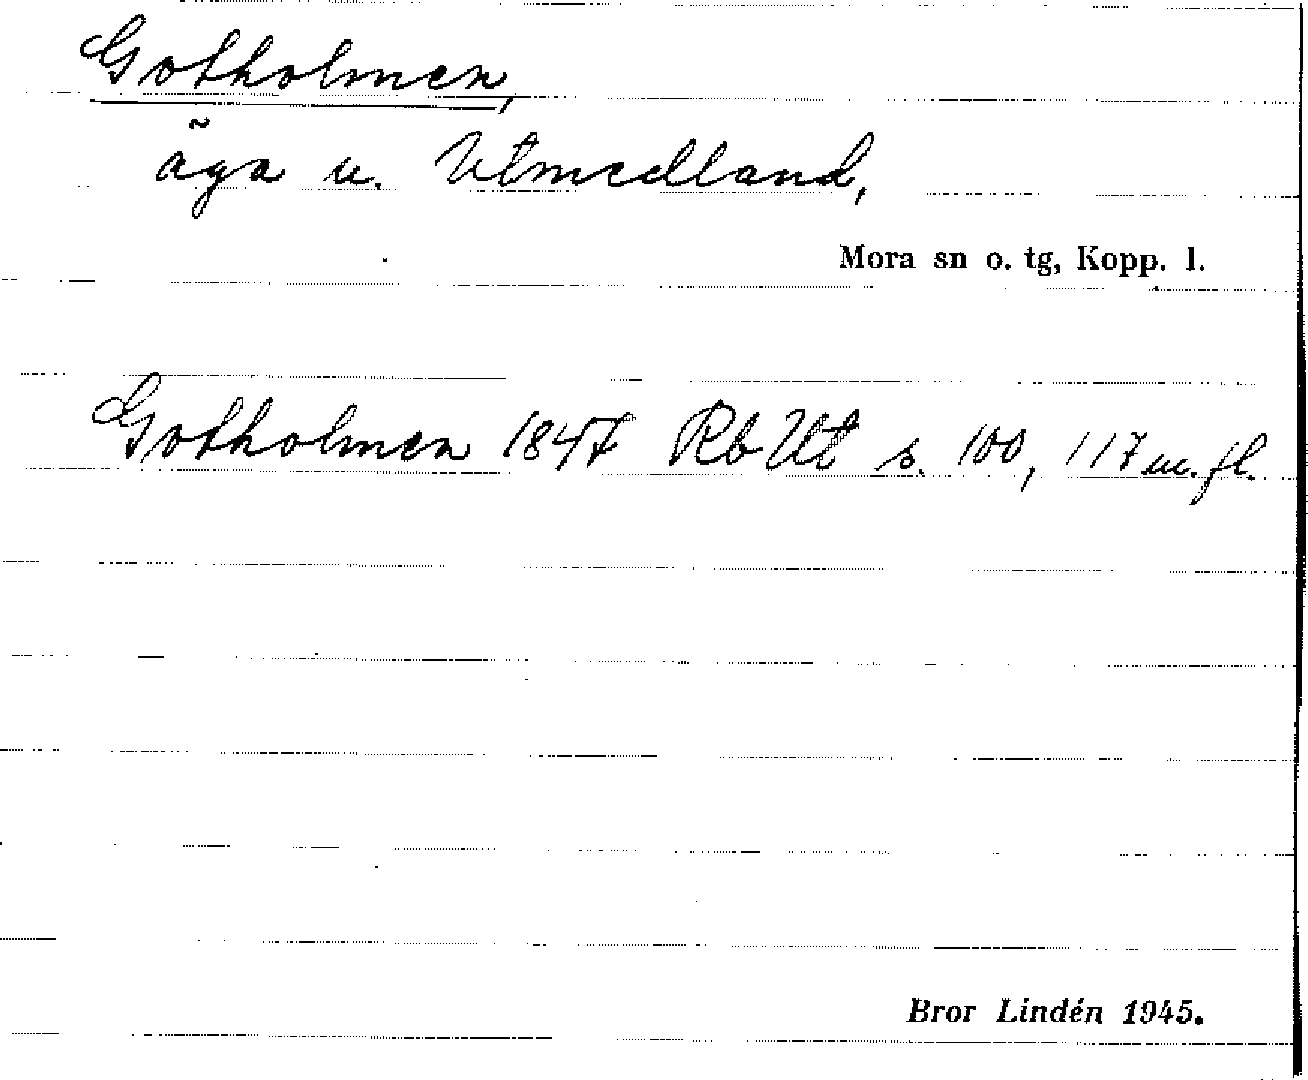 Gotholmen,
äga u. Utmedland,
Mora sn o. tg, Kopp. l.
Gotholmen 1847 Rb Ut s. 100, 117 m. fl.
Bror Lindén 1945.